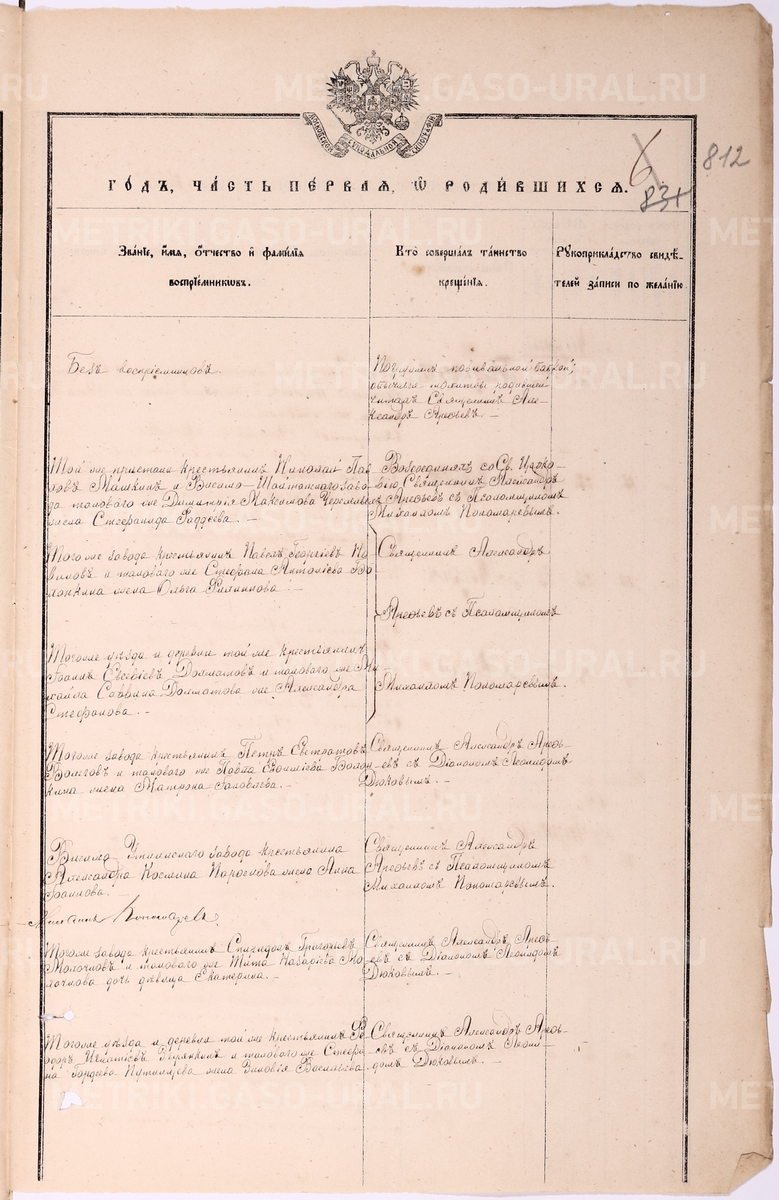 METRIKI.GASO-URAL.RU
МОСКОВСКОЙ СѴНОДАЛЬНОЙ ТИПОГРАФІИ
6
831
812
ГОДЪ, ЧАСТЬ ПЕРВАЯ, Ѡ РОДИВШИХСЯ.
Званіе, имя, отчество и фамилія
воспріемниковъ.
Кто совершалъ таинство
крещенія.
Рукоприкладство свидѣ-
телей записи по желанію
Безъ воспріемниковъ.
Погружена повивальной бабкой,
молитвы родившей
читалъ Священникъ Але-
ксандръ Арефьевъ. -
Той же крестьянинъ Николай Пав-
ловъ Машкинъ и Висимо-Шайтанскаго заво-
да таковаго же Димитрія Максимова
жена Стефанида Фаддеева. -
со Св. Церко-
вію Священникъ Александръ
Арефьевъ съ Псаломщикомъ
Михаиломъ Пономаревымъ.
Того же завода крестьянинъ Павелъ Георгіевъ
и таковаго же Стефана
жена Ольга Филиппова. -
Священникъ Александръ
Арефьевъ съ Псаломщикомъ
Михаиломъ Пономаревымъ.
Того же уѣзда и деревни той же крестьянинъ
Іоаннъ Долматовъ и таковаго же Ми-
хаила Саввина Долматова же Александра
Стефанова. -
Того же завода крестьянинъ Петръ Евстратовъ
и таковаго же Павла
кина жена Матрона
Священникъ Александръ Арефь-
евъ съ Діакономъ Леонидомъ
Дюковымъ. -
Висимо-Уткинскаго завода крестьянина
Александра Космина жена Анна
Іоаннова. -
Священникъ Александръ
Арефьевъ съ Псаломщикомъ
Михаиломъ Пономаревымъ.
Того же завода крестьянинъ Спиридонъ Григорьевъ
Молочковъ и таковаго же Тита Назарьева Мо-
лочкова дочь дѣвица Екатерина. -
Священникъ Александръ Арефь-
евъ съ Діакономъ Леонидомъ
Дюковымъ. -
Того же уѣзда и деревни той же крестьянинъ Ѳе-
одоръ Игнатіевъ и таковаго же Стефа-
на Гордѣева жена Зиновія Васильева.
Священникъ Александръ Арефь-
евъ съ Діакономъ Леони-
домъ Дюковымъ. -